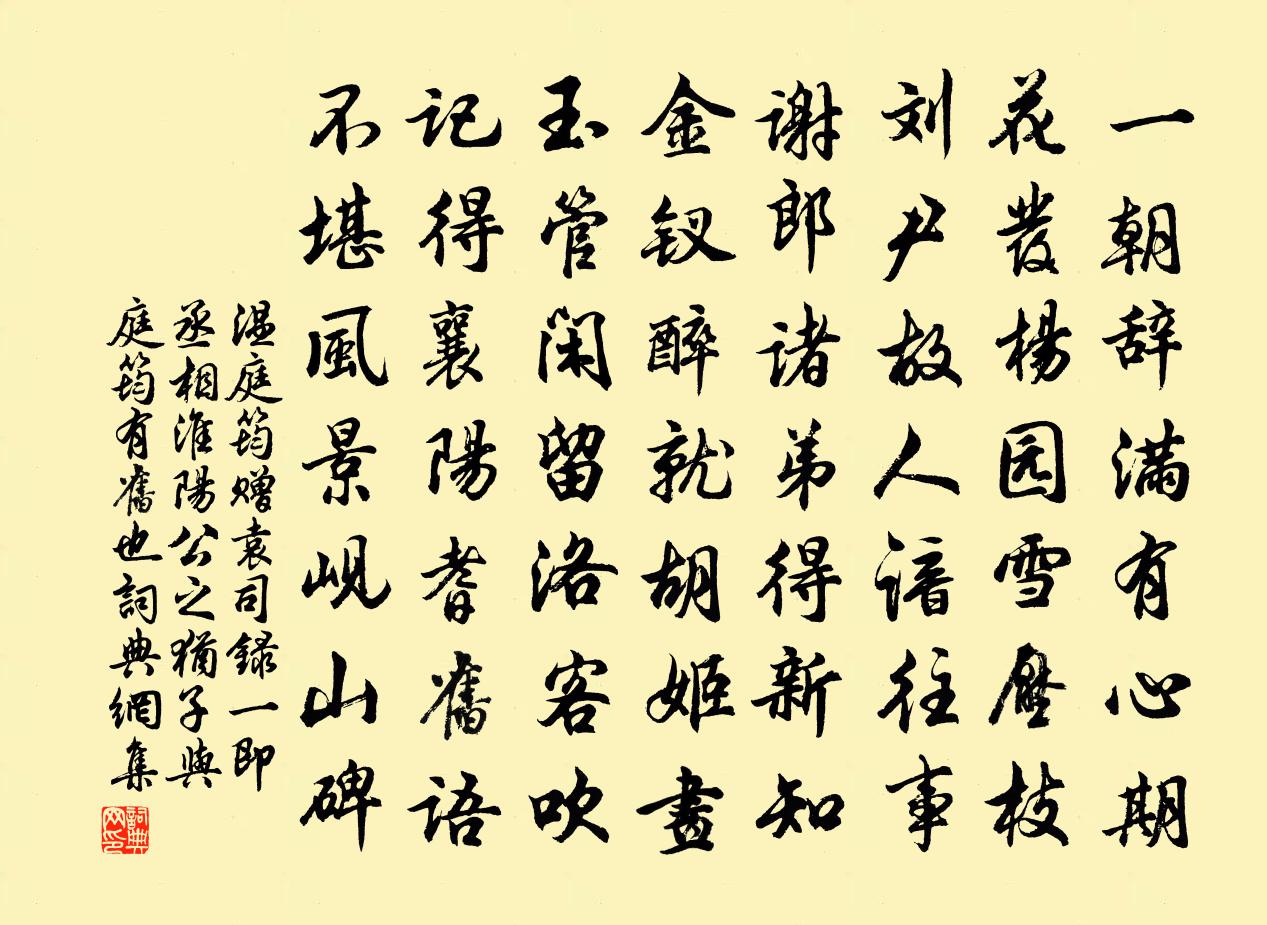 一朝辞满有心期
花發楊园雪壓枝
刘尹故人諳往事
謝郎诸弟得新知
金钗醉就胡姬畫
玉管閑留洛客吹
记得襄陽耆舊语
不堪風景岘山碑
温庭筠赠袁司録一即
丞相淮陽公之猶子與
庭筠有舊也詞典網集
詞典
网印